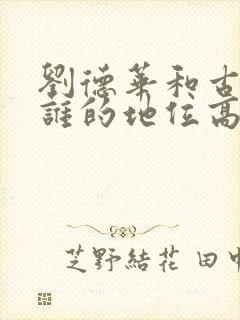 劉德華和古
誰的地位高
芝野結花 田中